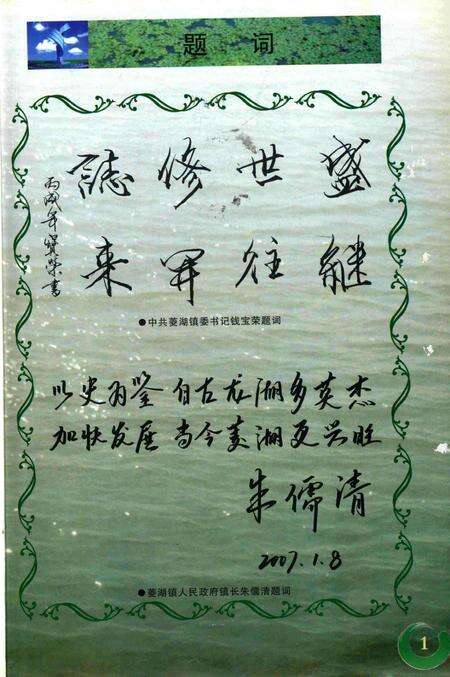 题 词
盛世修誌
继往开来
丙戌年 宝荣书
●中共菱湖镇委书记钱宝荣题词
以史为鉴 自古龙湖多英杰
加快发展 当今美湖更兴旺
朱儒清
2007.1.8
●菱湖镇人民政府镇长朱儒清题词
1